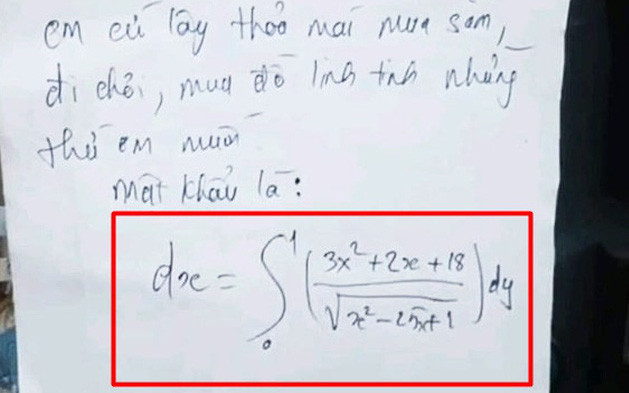 em cứ lấy thoả mái mua sắm,
đi chơi, mua đồ linh tinh những
thứ em muốn
Mật khẩu là:
dx = ∫₀¹ ( (3x² + 2x + 18) / √(x² - 25x + 1) ) dy